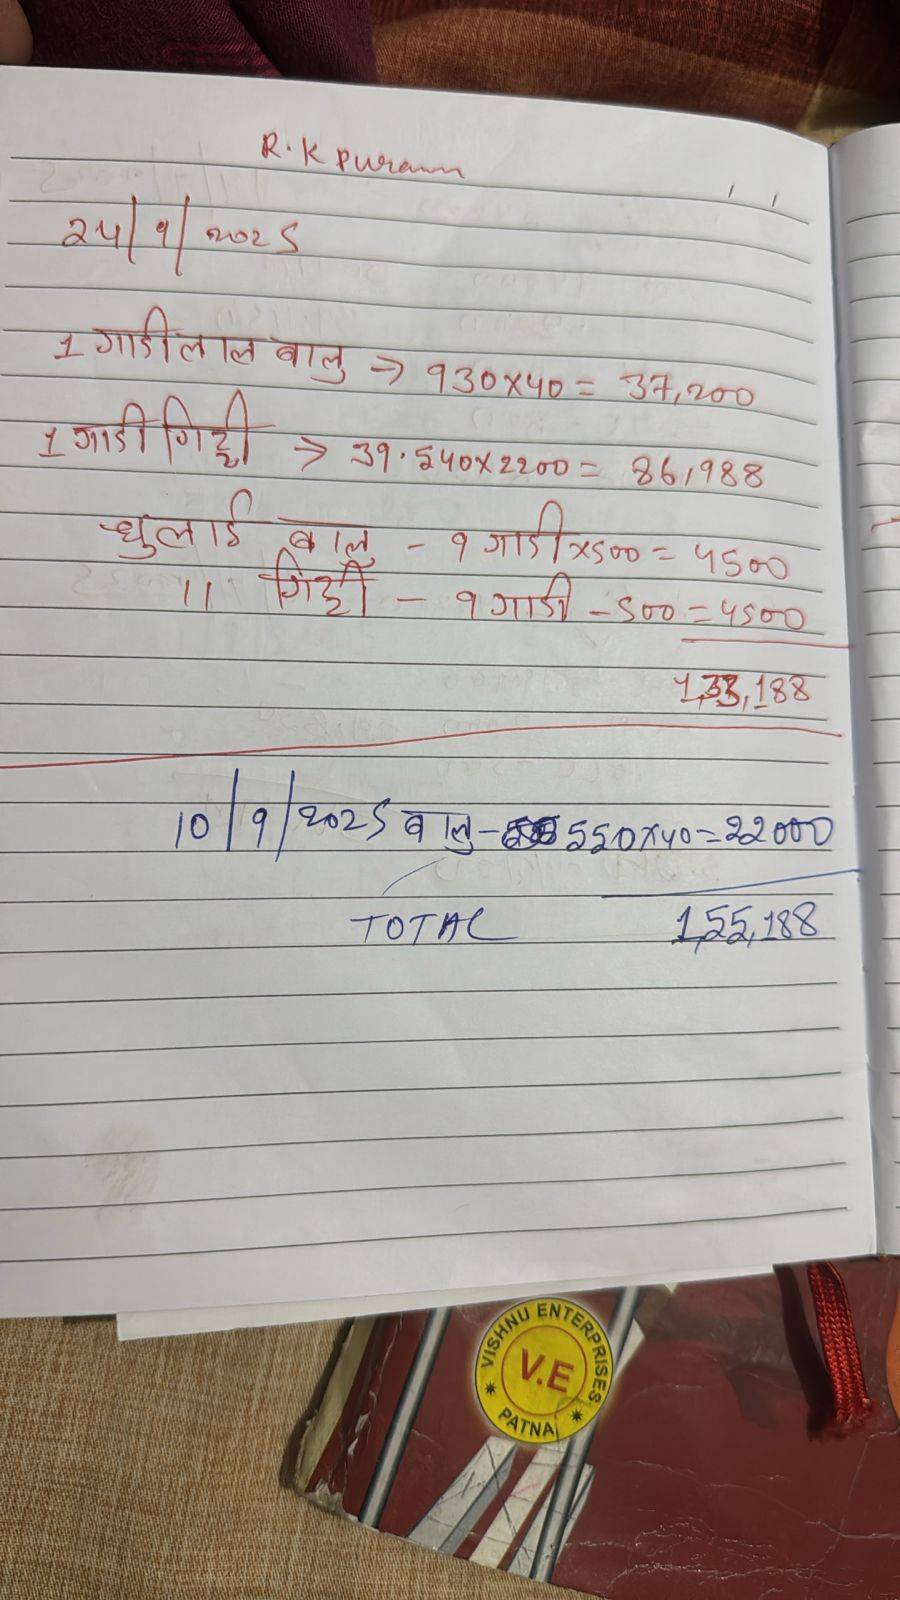 R.K Puram
24/9/2025
1 गाडी लाल बालु → 930x40 = 37,200
1 गाडी गिट्टी → 39.540x2200 = 86,988
धुलाई बालु - 9 गाडी x500 = 4500
11 गिट्टी - 9 गाडी - 500 = 4500
1,33,188
10/9/2025 बालु - 550x40 = 22000
TOTAL 1,55,188
VISHNU ENTERPRISES
V.E
PATNA